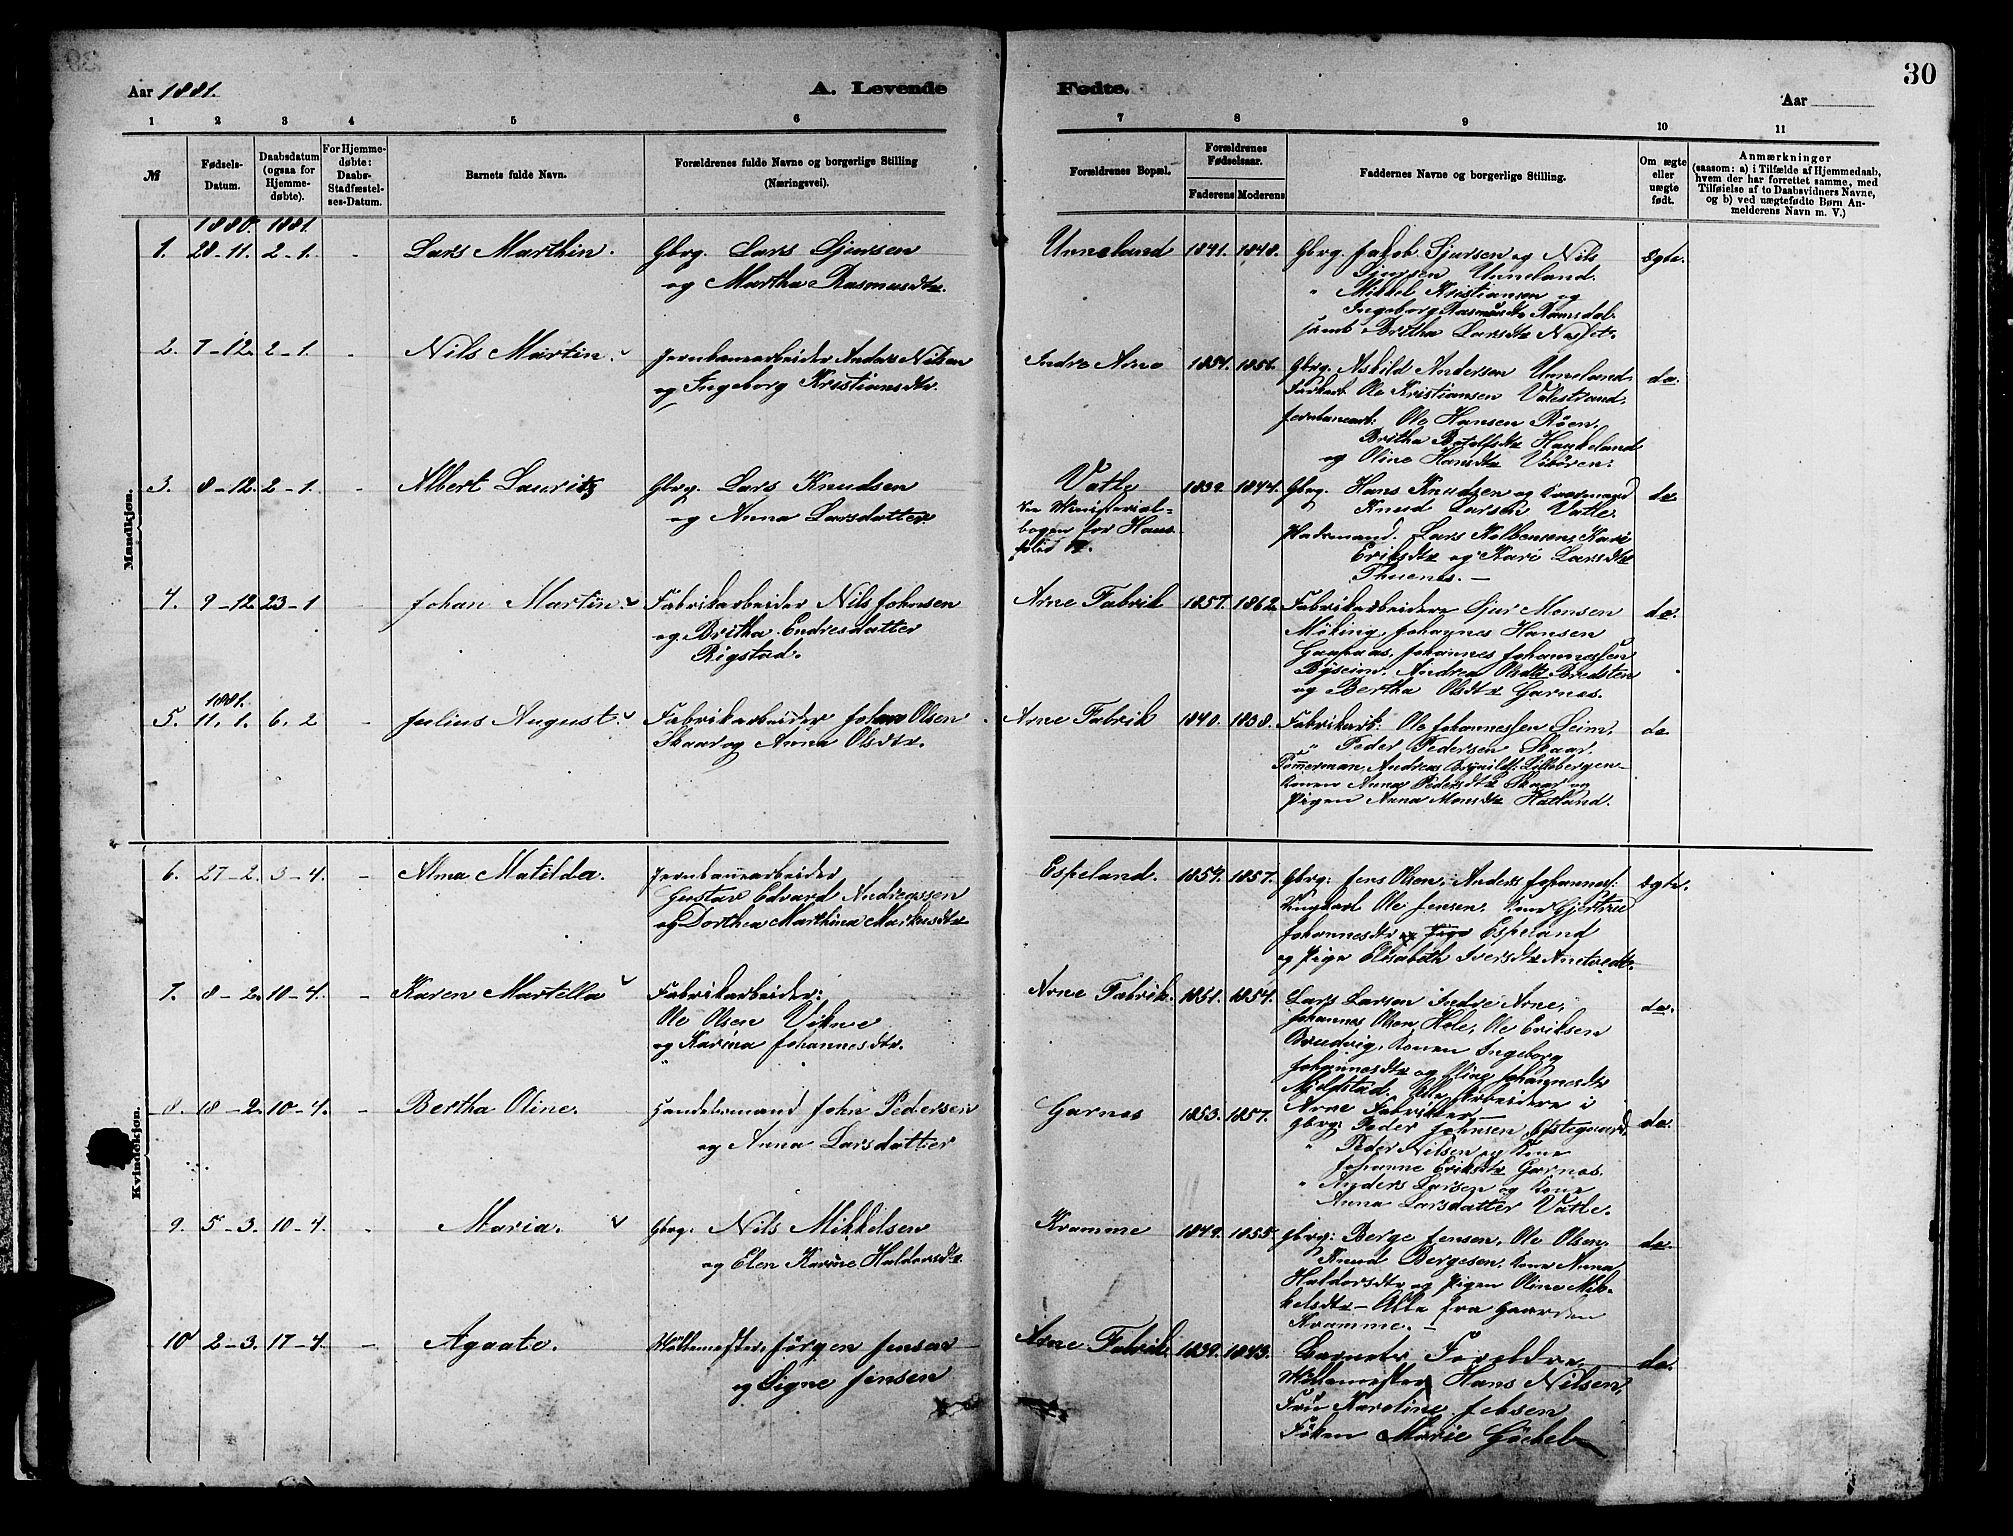 30
Aar 1881.
A. Levende
Fødte.
Aar
1 2 3 4 5 6 7 8 9 10 11
№
Fødsels-Datum.
Daabsdatum (ogsaa for Hjemmedøbte).
For Hjemmedøbte: Daabs-Stadfæstelses-Datum.
Barnets fulde Navn.
Forældrenes fulde Navne og borgerlige Stilling
(Næringsvei).
Forældrenes Bopæl.
Forældrenes Fødselsaar.
Faderens Moderens
Faddernes Navne og borgerlige Stilling.
Om ægte eller uægte født.
Anmærkninger
(saasom: a) i Tilfælde af Hjemmedaab,
hvem der har forrettet samme, med
Tilføielse af to Daabsvidners Navne,
og b) ved uægtefødte Børn Anmelderens Navn m. V.)
Mandkjøn.
1880. 1881.
1. 28-11. 2-1. - Lars Marthin. Gbrg. Lars Sjursen
og Martha Rasmusdtr.
Unneland 1841. 1848. Gbrg. Jakob Sjursen og Nils
Sjursen Unneland.
" Mikkel Kristiansen og
Ingeborg Rasmusdtr Ramsdal
samt Britha Larsdtr Næsset.
Ægte.
2. 7-12. 2-1. - Nils Martin. Jernbanearbeider Anders Nilsen
og Ingeborg Kristiansdtr.
Indre Arne 1854. 1856. Gbrg. Asbild Andersen Unneland.
Ole Kristiansen Valestrand,
Jernbanearb. Ole Hansen Røen,
Britha Botolfsdtr Haukeland
og Oline Hansdtr Vikøren.
do.
3. 8-12. 2-1. - Albert Lauritz Gbrg. Lars Knudsen
og Anna Larsdatter
Vatle
Se Ministerial-
bogen for Haus
folio
1839. 1844. Gbrg. Hans Knudsen og
Knud Larsen Vatle.
Lars Kolbensen, Kari
Eriksdtr og Kari Larsdtr
Thuenes. -
do
4. 9-12. 23-1 - Johan Martin. Fabrikarbeider Nils Johnsen
og Britha Endresdatter
Rigstad.
Arne Fabrik 1857. 1862. Fabrikarbeidere Sjur Monsen
Møking, Johannes Hansen
Gaapaas, Johannes Johannessen
Byseim, Andrea Olsdtr Bredsten
og Bertha Olsdtr Garnes.
do.
1881.
5. 11. 1. 6. 2 - Julius August. Fabrikarbeider Johan Olsen
Skaar og Anna Olsdtr.
Arne Fabrik 1840. 1838. Fabrikarb: Ole Johannessen Seim,
" Peder Pedersen Skaar.
Tømmerman, Andreas Brynilds. Lillebergen
Konen Anna Pedersdtr Skaar og
Pigen Anna Monsdtr Hatland.
do
Kvindekjøn.
6. 27-2. 3-4. - Alma Matilda. Jernbanearbeider
Gustav Edvard Andreassen
og Dorthea Marthina Markusdtr
Espeland. 1859. 1857. Gbrg: Jens Olsen, Anders Johannes:
Ungkarl Ole Jensen, Kone Gjertrud
Johannesdtr Espeland
og Pige Elisabeth Iversdtr
Ægte.
7. 8-2. 10-4. - Karen Martella Fabrikarbeider:
Ole Olsen Vikne
og Karina Johannesdtr.
Arne Fabrik. 1851. 1854. Lars Larsen Indre Arne,
Johannes Olsen Hole, Ole Eriksen
Brudvig, Konen Ingeborg
Johannesdtr og Oline Johannesdtr
Mjelstad. Alle Arbeidere i
Arne Fabrikker -
do.
8. 18-2. 10-4. - Bertha Oline. Handelsmand John Pedersen
og Anna Larsdatter
Garnes 1853. 1857. Gbrg: Peder Johnsen Østegaard,
" Peder Nilsen og Kone
Johanne Eriksdtr Garnes.
" Anders Larsen og Kone
Anna Larsdatter Vatle.
do.
9. 5-3. 10-4. - Maria. Gbrg. Nils Mikkelsen
og Elen Karine Haldorsdtr
Kvamme 1849. 1855. Gbrg: Berge Jensen, Ole Olsen,
Knud Bergesen, Kone Anna
Haldorsdtr og Pigen Oline Mik-
kelsdtr - Alle fra Gaarden
Kvamme. -
do.
10 2-3. 17-4. - Agaate. Møllemester Jørgen Jensen
og Signe Jensen
Arne Fabrik. 1839. 1843. Barnets Foreldre
Møllemester Hans Nilsen,
Fru Karoline Jebsen
Frøken Marie Göckel
do.